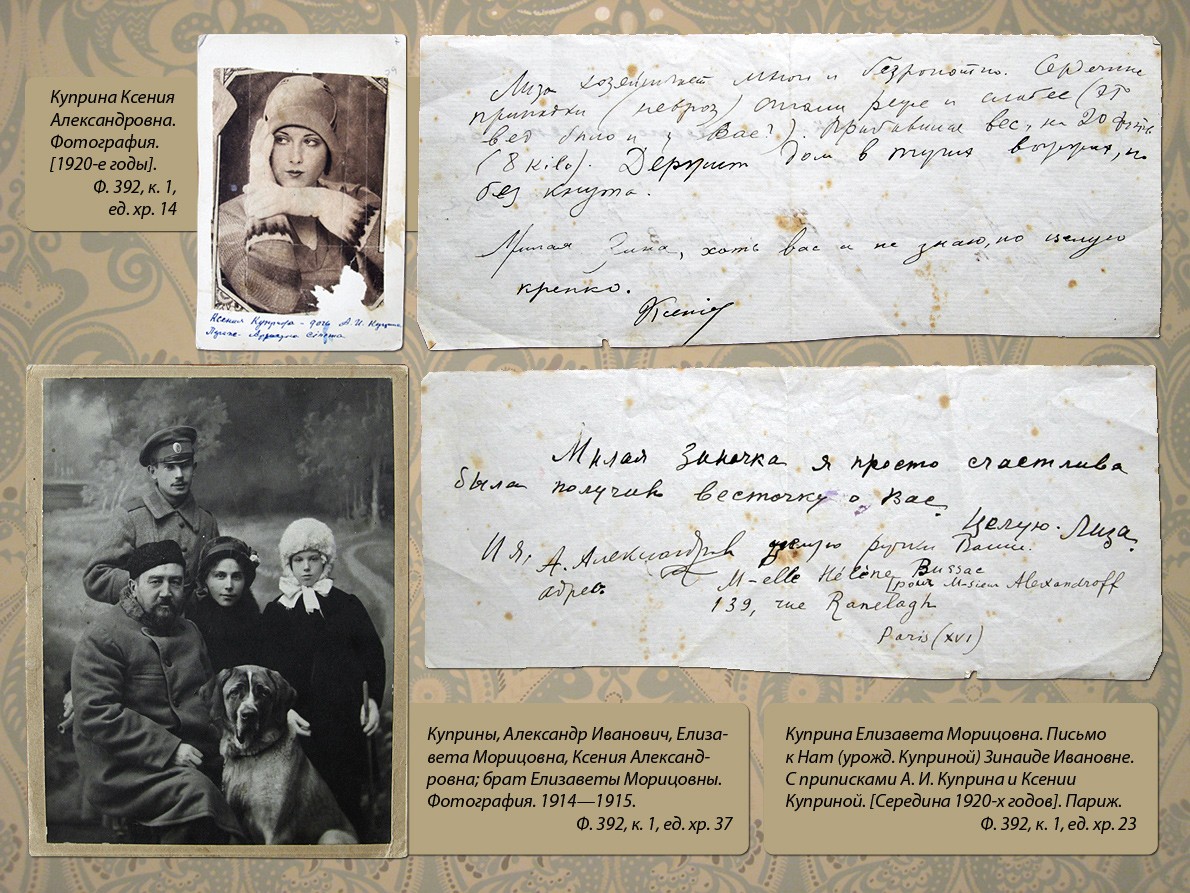 Куприна Ксения
Александровна.
Фотография.
[1920-е годы].
Ф. 392, к. 1,
ед. хр. 14
Ксения Куприна – дочь А. И. Куприна
Лиза хозяйничает умно и безропотно. Сердечные
припадки (невроз) стали реже и слабее (это
ведь было и у Вас?). Прибавила вес, на 20
(8 kilo). Держит дом в тугих но
без кнута.
Милая Зина, хоть вас и не знаю, но целую
крепко.
Ksenia
Милая Зиночка я просто счастлива
была получив весточку о Вас.
Целую. Лиза.
И я, А. Александров целую ручки Ваши.
адрес M-elle Hélène Bussac
pour Monsieur Alexandroff
139, rue Ranelagh
Paris (XVI)
Куприны, Александр Иванович, Елиза-
вета Морицовна, Ксения Александ-
ровна; брат Елизаветы Морицовны.
Фотография. 1914—1915.
Ф. 392, к. 1, ед. хр. 37
Куприна Елизавета Морицовна. Письмо
к Нат (урожд. Куприной) Зинаиде Ивановне.
С приписками А. И. Куприна и Ксении
Куприной. [Середина 1920-х годов]. Париж.
Ф. 392, к. 1, ед. хр. 23